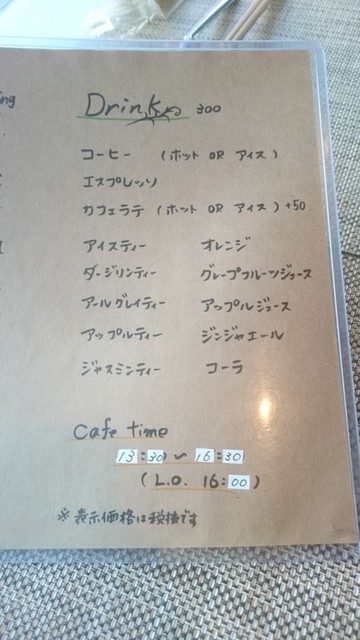 ng
Drink 300
コーヒー （ホット OR アイス）
エスプレッソ
カフェラテ （ホット OR アイス）+50
アイスティー オレンジ
ダージリンティー グレープフルーツジュース
アールグレイティー アップルジュース
アップルティー ジンジャエール
ジャスミンティー コーラ
Cafe time
13:30 〜 16:30
(L.O. 16:00)
※表示価格は税抜です